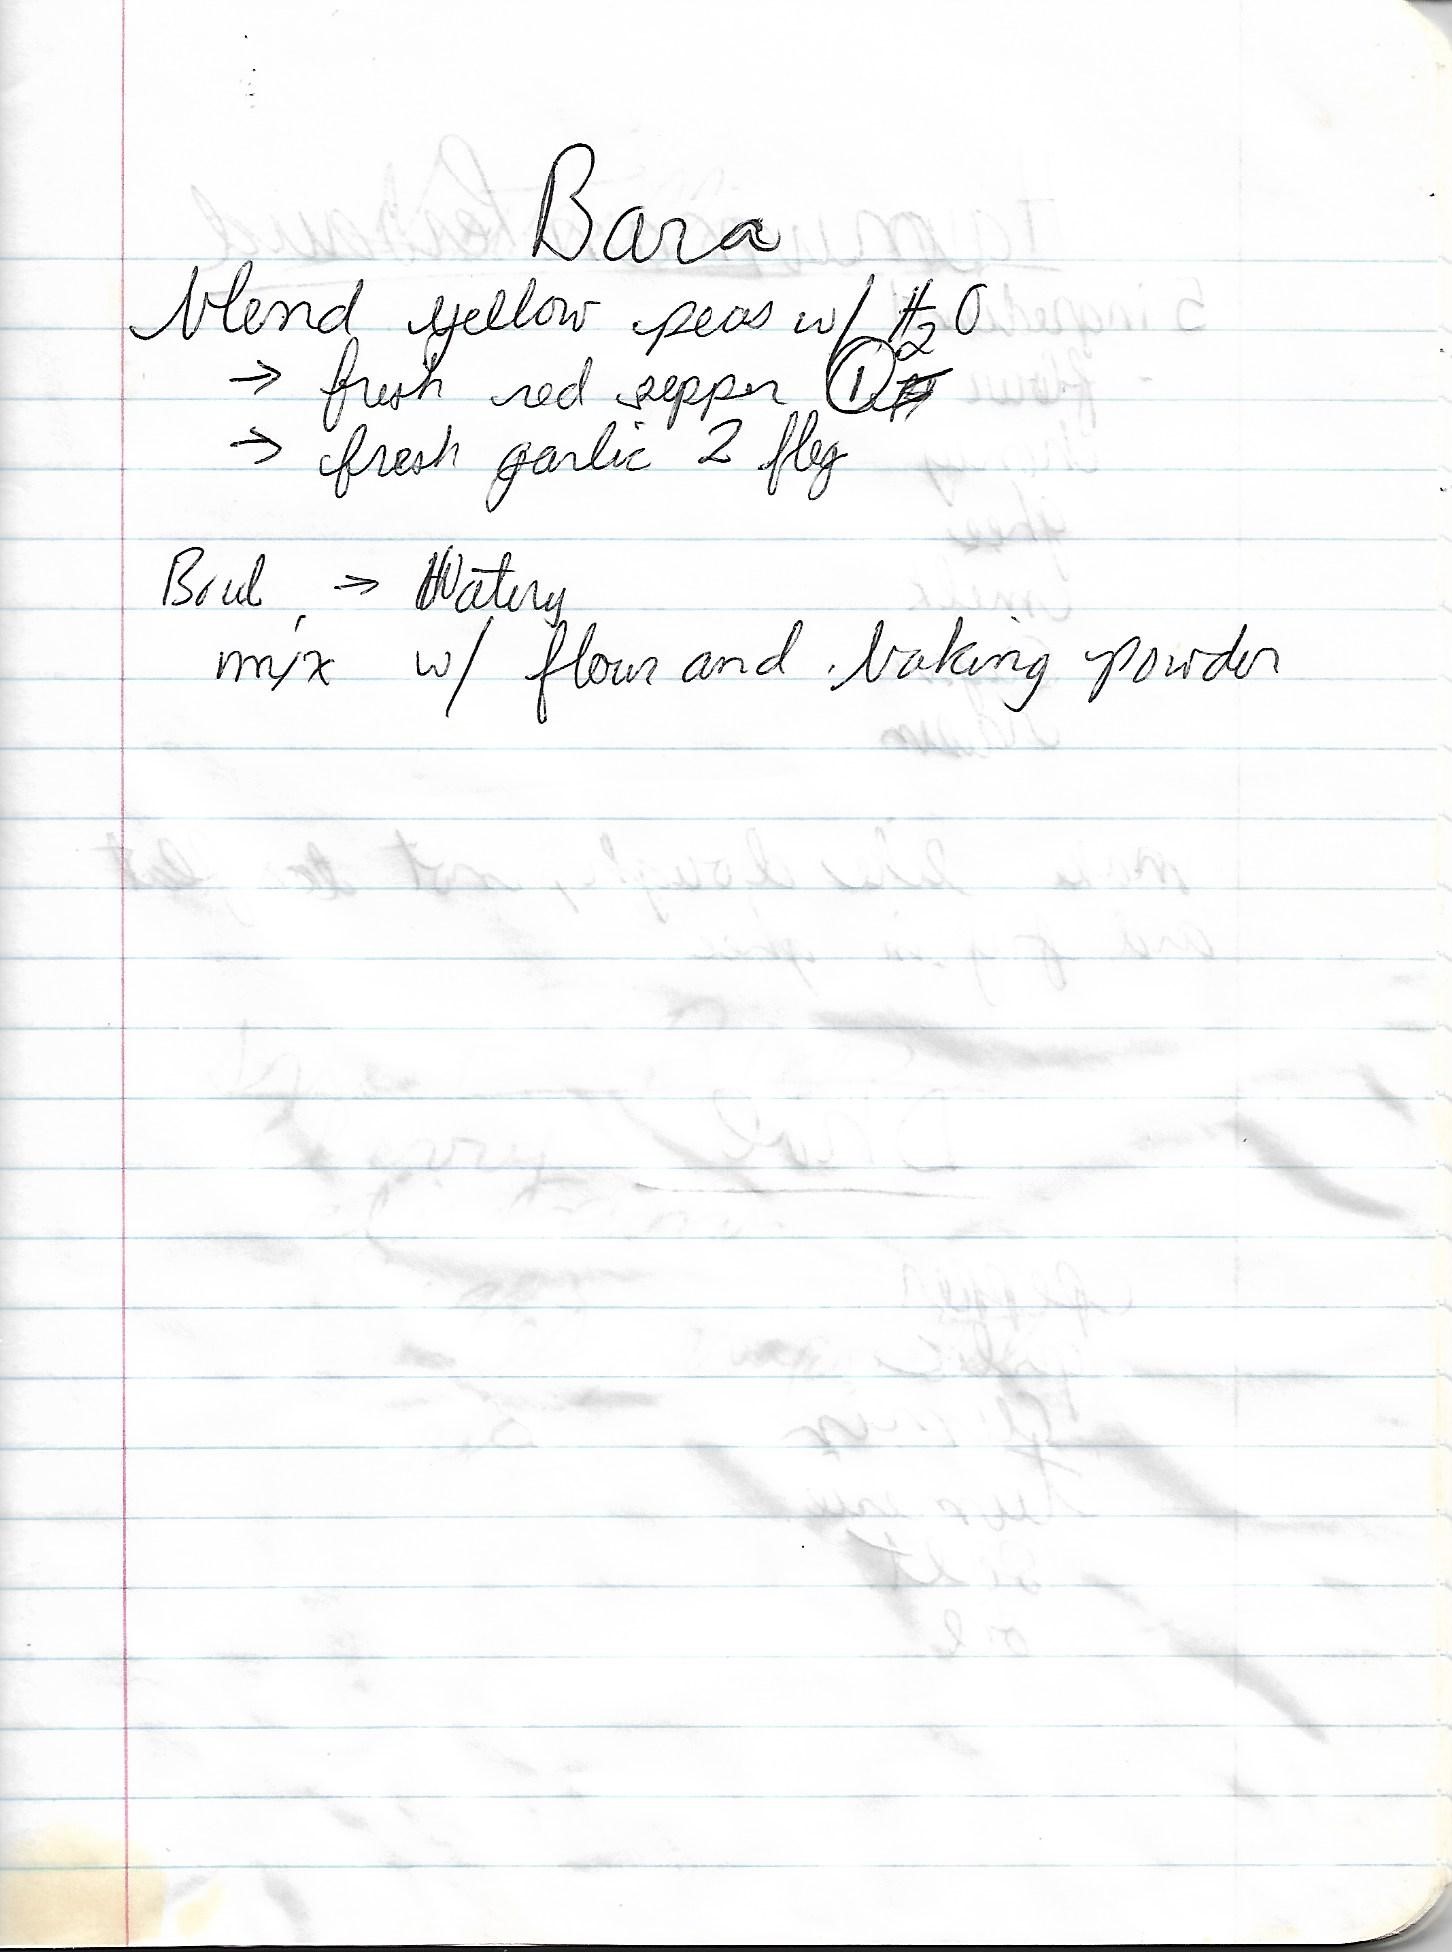 Bara
blend yellow peas w/ H2O
→ fresh red pepper 1
→ fresh garlic 2
→ Watery
mix w/ flour and baking powder